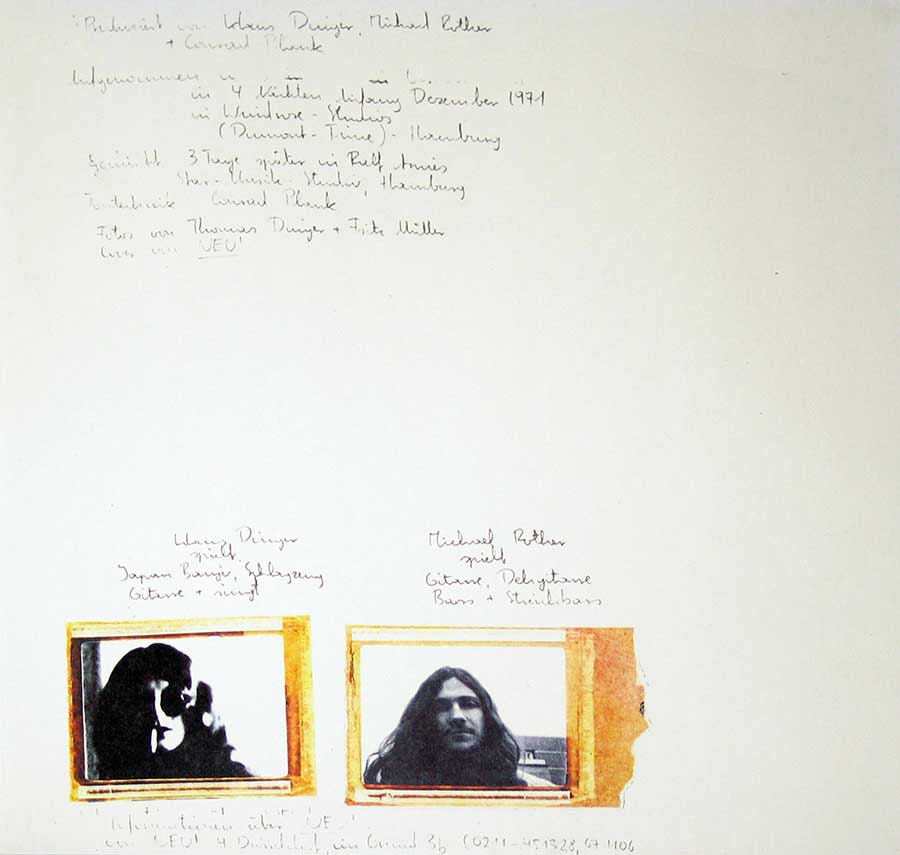 Produziert von Klaus Dinger, Michael Rother
+ Conrad Plank
Aufgenommen
in 4 Nächten Anfang Dezember 1971
in Windrose - Studios
(Dumont - Time) - Hamburg
Gemischt 3 Tage später in Ralf Arnies
Star-Musik-Studio, Hamburg
Tontechnik Conrad Plank
Fotos von Thomas Dinger + Fritz Müller
Cover von NEU!
Klaus Dinger
spielt
Japan Banjo, Schlagzeug
Gitarre + singt
Michael Rother
spielt
Gitarre, Dehgitarre
Bass + Streichbass
Informationen über 'NEU'
von 'NEU' 4 Düsseldorf, im Grund 36 (0211-451328,